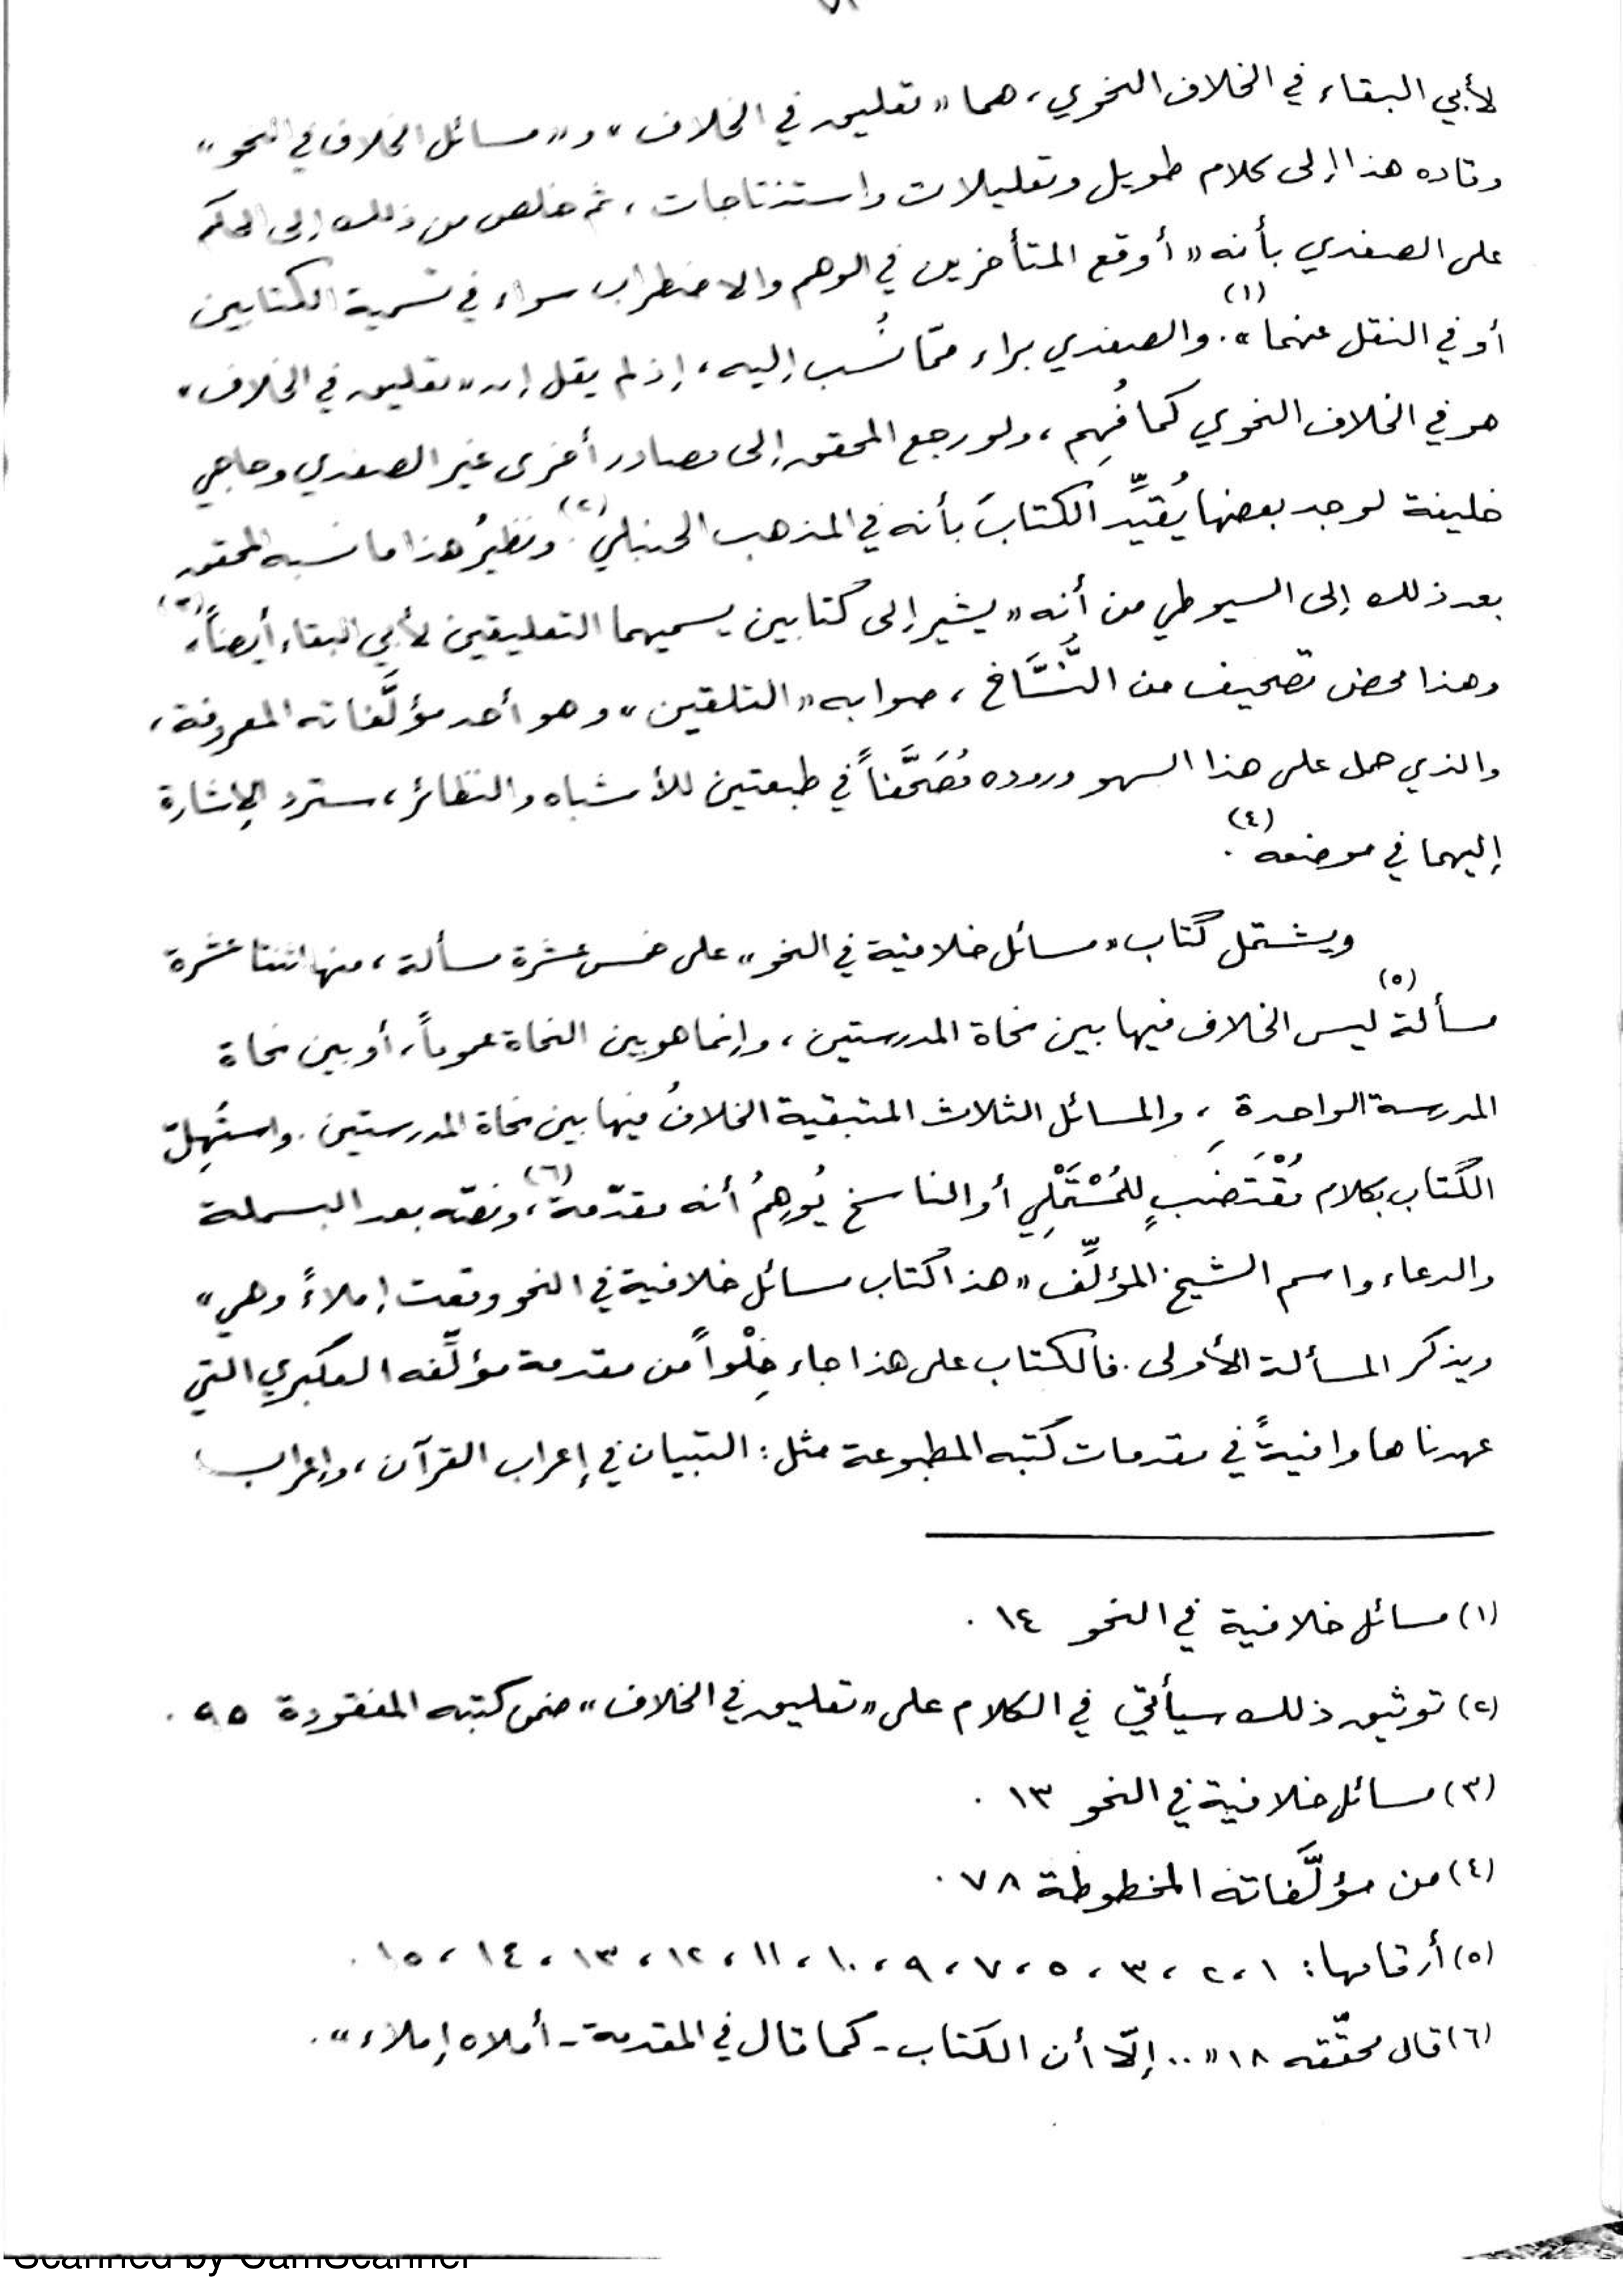 لأبي البقاء في الخلاف النحوي، هما «تعليق في الخلاف» و«مسائل الخلاف في النحو»
وقاده هذا إلى كلام طويل وتعليلات واستنتاجات، ثم خلص من ذلك إلى الحكم
على الصفدي بأنه «أوقع المتأخرين في الوهم والاضطراب سواء في تسمية الكتابين
أو في النقل عنهما»(١). والصفدي براء ممّا نُسب إليه، إذ لم يقل إن «تعليق في الخلاف»
هو في الخلاف النحوي كما فُهِم، ولو رجع المحقق إلى مصادر أخرى غير الصفدي وحاجي
خليفة لوجد بعضها يُقيِّد الكتابَ بأنه في المذهب الحنبلي(٢). ونظيرُ هذا ما نسبه المحقق
بعد ذلك إلى السيوطي من أنه «يشير إلى كتابين يسميهما التعليقين لأبي البقاء أيضاً»(٣)
وهذا محض تصحيف من النُّسَّاخ، صوابه «التلقين» وهو أحد مؤلَّفاته المعروفة،
والذي حمل على هذا السهو وروده مُصَحَّفاً في طبعتين للأشباه والنظائر، سترد الإشارة
إليهما في موضعه(٤).
ويشتمل كتاب «مسائل خلافية في النحو» على خمس عشرة مسألة، منها اثنتا عشرة
مسألة(٥) ليس الخلاف فيها بين نحاة المدرستين، وإنما هو بين النحاة عموماً، أو بين نحاة
المدرسة الواحدةِ، والمسائل الثلاث المتبقية الخلافُ فيها بين نحاة المدرستين. واستُهِلّ
الكتاب بكلام مُقْتَضَبٍ للمُسْتَمْلِي أو الناسخ يُوهِمُ أنه مقدّمة(٦)، ونصّه بعد البسملة
والدعاء واسم الشيخ المؤلِّف «هذا كتاب مسائل خلافية في النحو وقعت إملاءً وهي»
ويذكر المسألة الأولى. فالكتاب على هذا جاء خِلْواً من مقدمة مؤلِّفه العكبري التي
عهدناها وافيةً في مقدمات كتبه المطبوعة مثل: التبيان في إعراب القرآن، وإعراب
(١) مسائل خلافية في النحو ١٤.
(٢) توثيق ذلك سيأتي في الكلام على «تعليق في الخلاف» ضمن كتبه المفقودة ٩٥.
(٣) مسائل خلافية في النحو ١٣.
(٤) من مؤلَّفاته المخطوطة ٧٨.
(٥) أرقامها: ١، ٢، ٣، ٥، ٧، ٩، ١٠، ١١، ١٢، ١٣، ١٤، ١٥.
(٦) قال محقّقه ١٨ «.. إلّا أن الكتاب - كما قال في المقدمة - أملاه إملاء».
Scanned by CamScanner